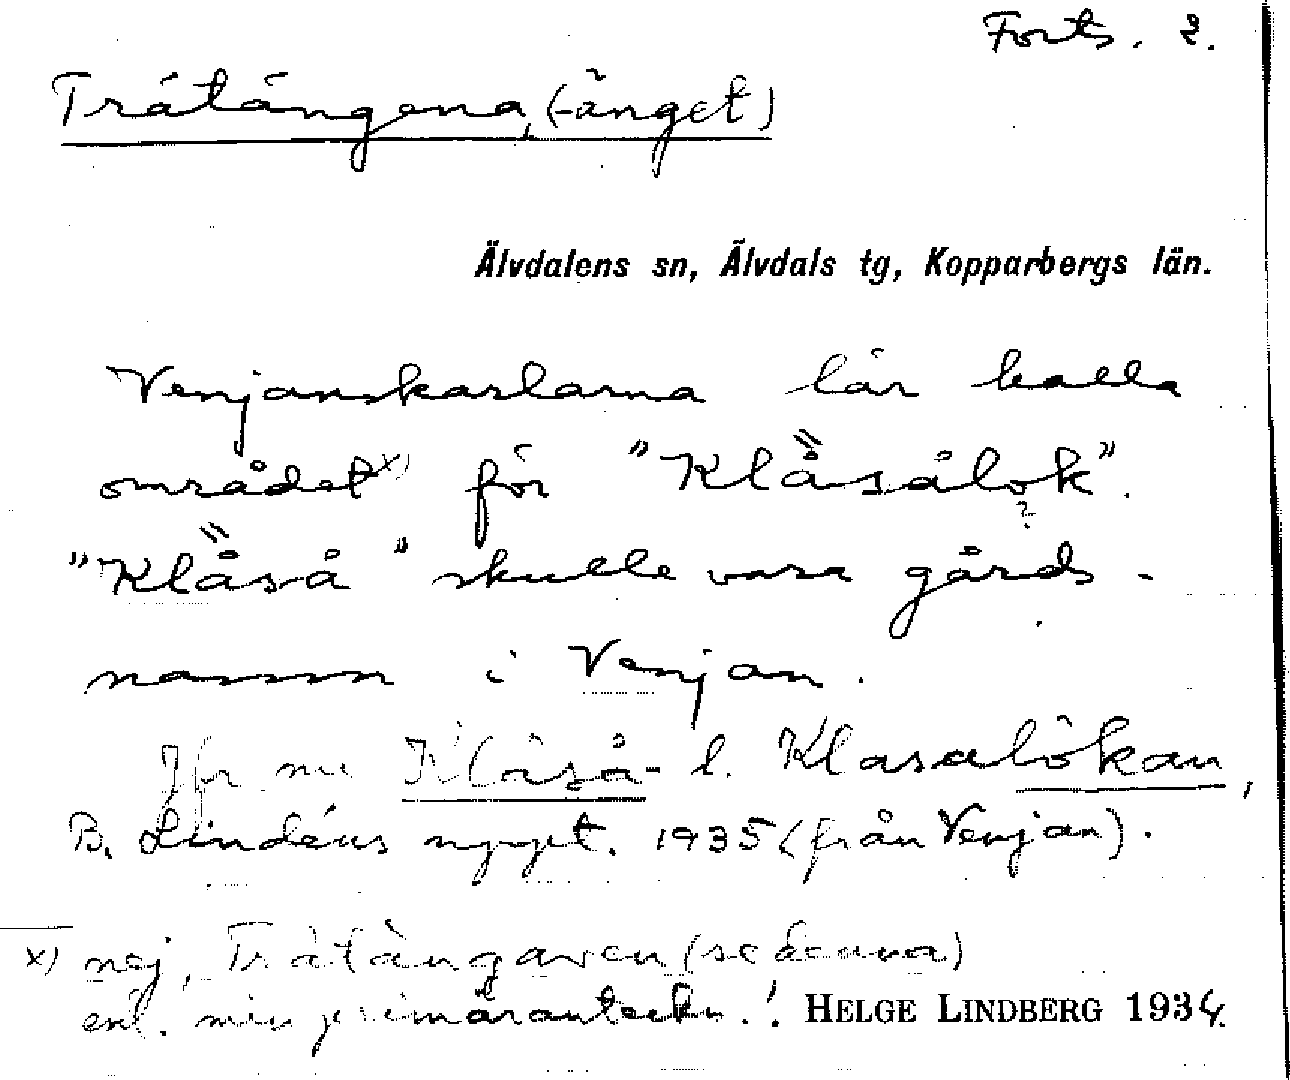 Forts. 2.
Tråtängena, (-änget)
Älvdalens sn, Älvdals tg, Kopparbergs län.
Venjanskarlarna lär kalla
området x) för "Klåsålok".
?
"Klåså" skulle vara gårds-
namn i Venjan.
Jfr nu Klåså- l. Klasalökan,
B. Lindéns nyupt. 1935 (från Venjan).
x) nej, Tråtängaven (se denna)
enl. min primäranteckn.! HELGE LINDBERG 1934.